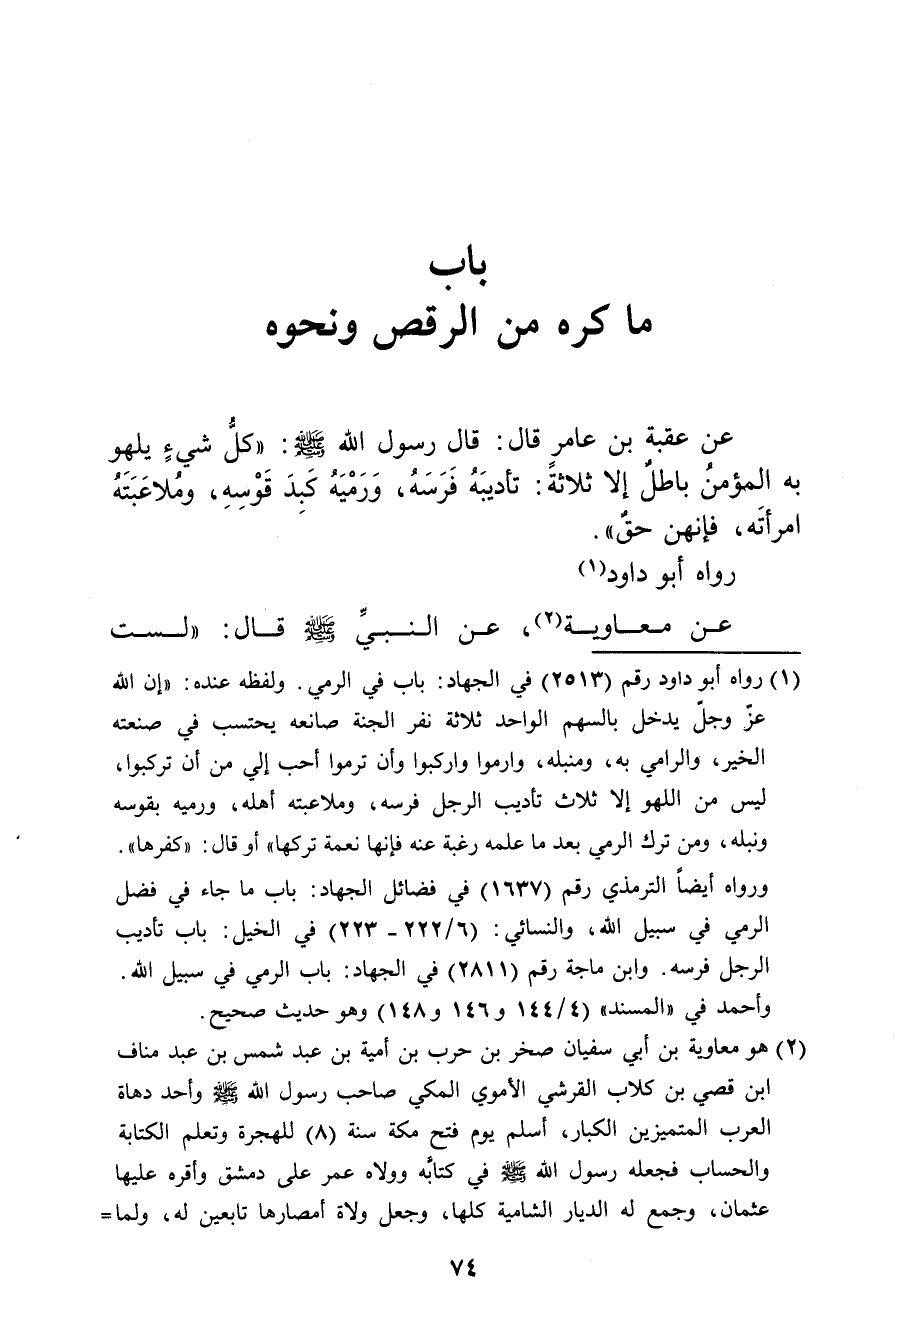 باب
ما كره من الرقص ونحوه
عن عقبة بن عامر قال: قال رسول الله ﷺ: «كلُّ شيءٍ يلهو
به المؤمنُ باطلٌ إلا ثلاثةً: تأديبَهُ فَرَسَهُ، وَرَمْيَهُ كَبِدَ قَوْسِهِ، ومُلاعَبَتَهُ
امرأتَه، فإنهن حقٌ».
رواه أبو داود(١)
عن معاوية(٢)، عن النبيِّ ﷺ قال: «لست
(١) رواه أبو داود رقم (٢٥١٣) في الجهاد: باب في الرمي. ولفظه عنده: «إن الله
عزّ وجلّ يدخل بالسهم الواحد ثلاثة نفر الجنة صانعه يحتسب في صنعته
الخير، والرامي به، ومنبله، وارموا واركبوا وأن ترموا أحب إلي من أن تركبوا،
ليس من اللهو إلا ثلاث تأديب الرجل فرسه، وملاعبته أهله، ورميه بقوسه
ونبله، ومن ترك الرمي بعد ما علمه رغبة عنه فإنها نعمة تركها» أو قال: «كفرها».
ورواه أيضاً الترمذي رقم (١٦٣٧) في فضائل الجهاد: باب ما جاء في فضل
الرمي في سبيل الله، والنسائي: (٢٢٢/٦ - ٢٢٣) في الخيل: باب تأديب
الرجل فرسه. وابن ماجة رقم (٢٨١١) في الجهاد: باب الرمي في سبيل الله.
وأحمد في «المسند» (١٤٤/٤ و ١٤٦ و ١٤٨) وهو حديث صحيح.
(٢) هو معاوية بن أبي سفيان صخر بن حرب بن أمية بن عبد شمس بن عبد مناف
ابن قصي بن كلاب القرشي الأموي المكي صاحب رسول الله ﷺ وأحد دهاة
العرب المتميزين الكبار، أسلم يوم فتح مكة سنة (٨) للهجرة وتعلم الكتابة
والحساب فجعله رسول الله ﷺ في كتابَّه وولاه عمر على دمشق وأقره عليها
عثمان، وجمع له الديار الشامية كلها، وجعل ولاة أمصارها تابعين له، ولما=
٧٤